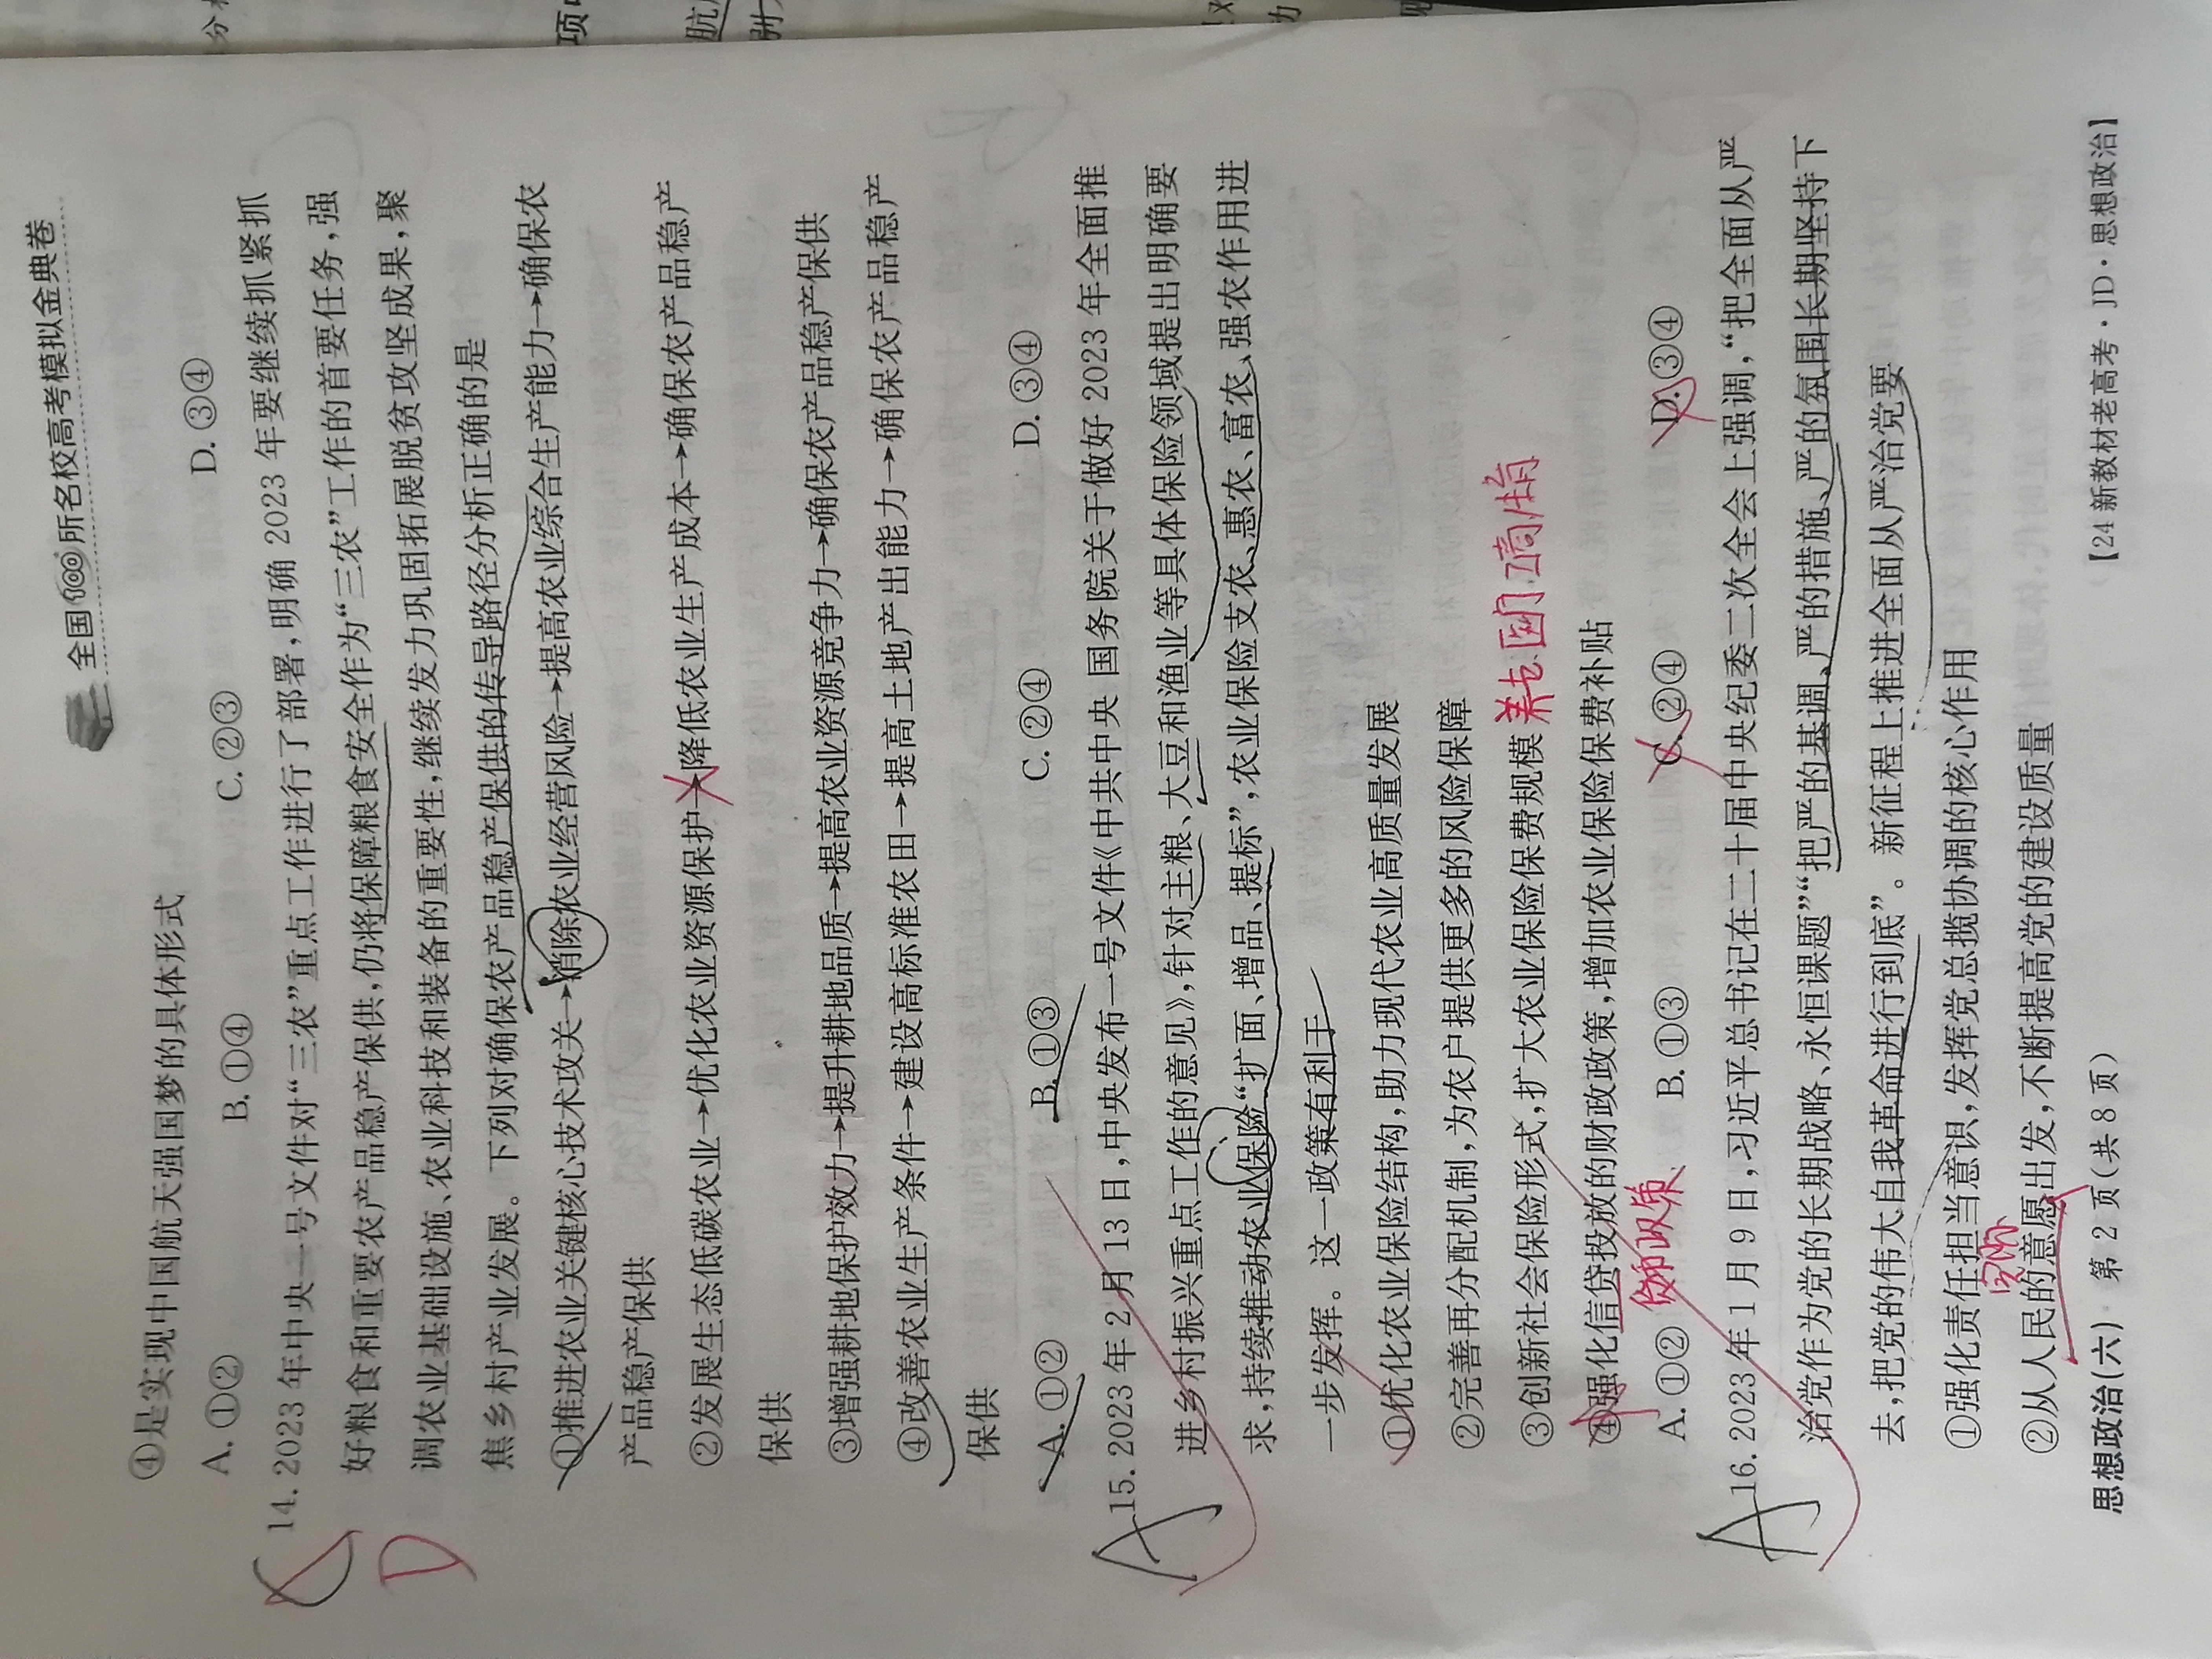 全国100所名校高考模拟金典卷
④是实现中国航天强国梦的具体形式
A.①② B.①④ C.②③ D.③④
14.2023年中央一号文件对“三农”重点工作进行了部署,明确2023年要继续抓紧抓
好粮食和重要农产品稳产保供,仍将保障粮食安全作为“三农”工作的首要任务,强
调农业基础设施、农业科技和装备的重要性,继续发力巩固拓展脱贫攻坚成果,聚
焦乡村产业发展。下列对确保农产品稳产保供的传导路径分析正确的是
①推进农业关键核心技术攻关→消除农业经营风险→提高农业综合生产能力→确保农
产品稳产保供
②发展生态低碳农业→优化农业资源保护→降低农业生产成本→确保农产品稳产
保供
③增强耕地保护效力→提升耕地品质→提高农业资源竞争力→确保农产品稳产保供
④改善农业生产条件→建设高标准农田→提高土地产出能力→确保农产品稳产
保供
A.①② B.①③ C.②④ D.③④
D
15.2023年2月13日,中央发布一号文件《中共中央 国务院关于做好2023年全面推
进乡村振兴重点工作的意见》,针对主粮、大豆和渔业等具体保险领域提出明确要
求,持续推动农业保险“扩面、增品、提标”,农业保险支农、惠农、富农、强农作用进
一步发挥。这一政策有利于
①优化农业保险结构,助力现代农业高质量发展
②完善再分配机制,为农户提供更多的风险保障
③创新社会保险形式,扩大农业保险保费规模
④强化信贷投放的财政政策,增加农业保险保费补贴
A.①② B.①③ C.②④ D.③④
A
16.2023年1月9日,习近平总书记在二十届中央纪委二次全会上强调,“把全面从严
治党作为党的长期战略、永恒课题”“把严的基调、严的措施、严的氛围长期坚持下
去,把党的伟大自我革命进行到底”。新征程上推进全面从严治党要
①强化责任担当意识,发挥党总揽协调的核心作用
②从人民的意愿出发,不断提高党的建设质量
A
思想政治(六) 第2页(共8页) 【24新教材老高考·JD·思想政治】